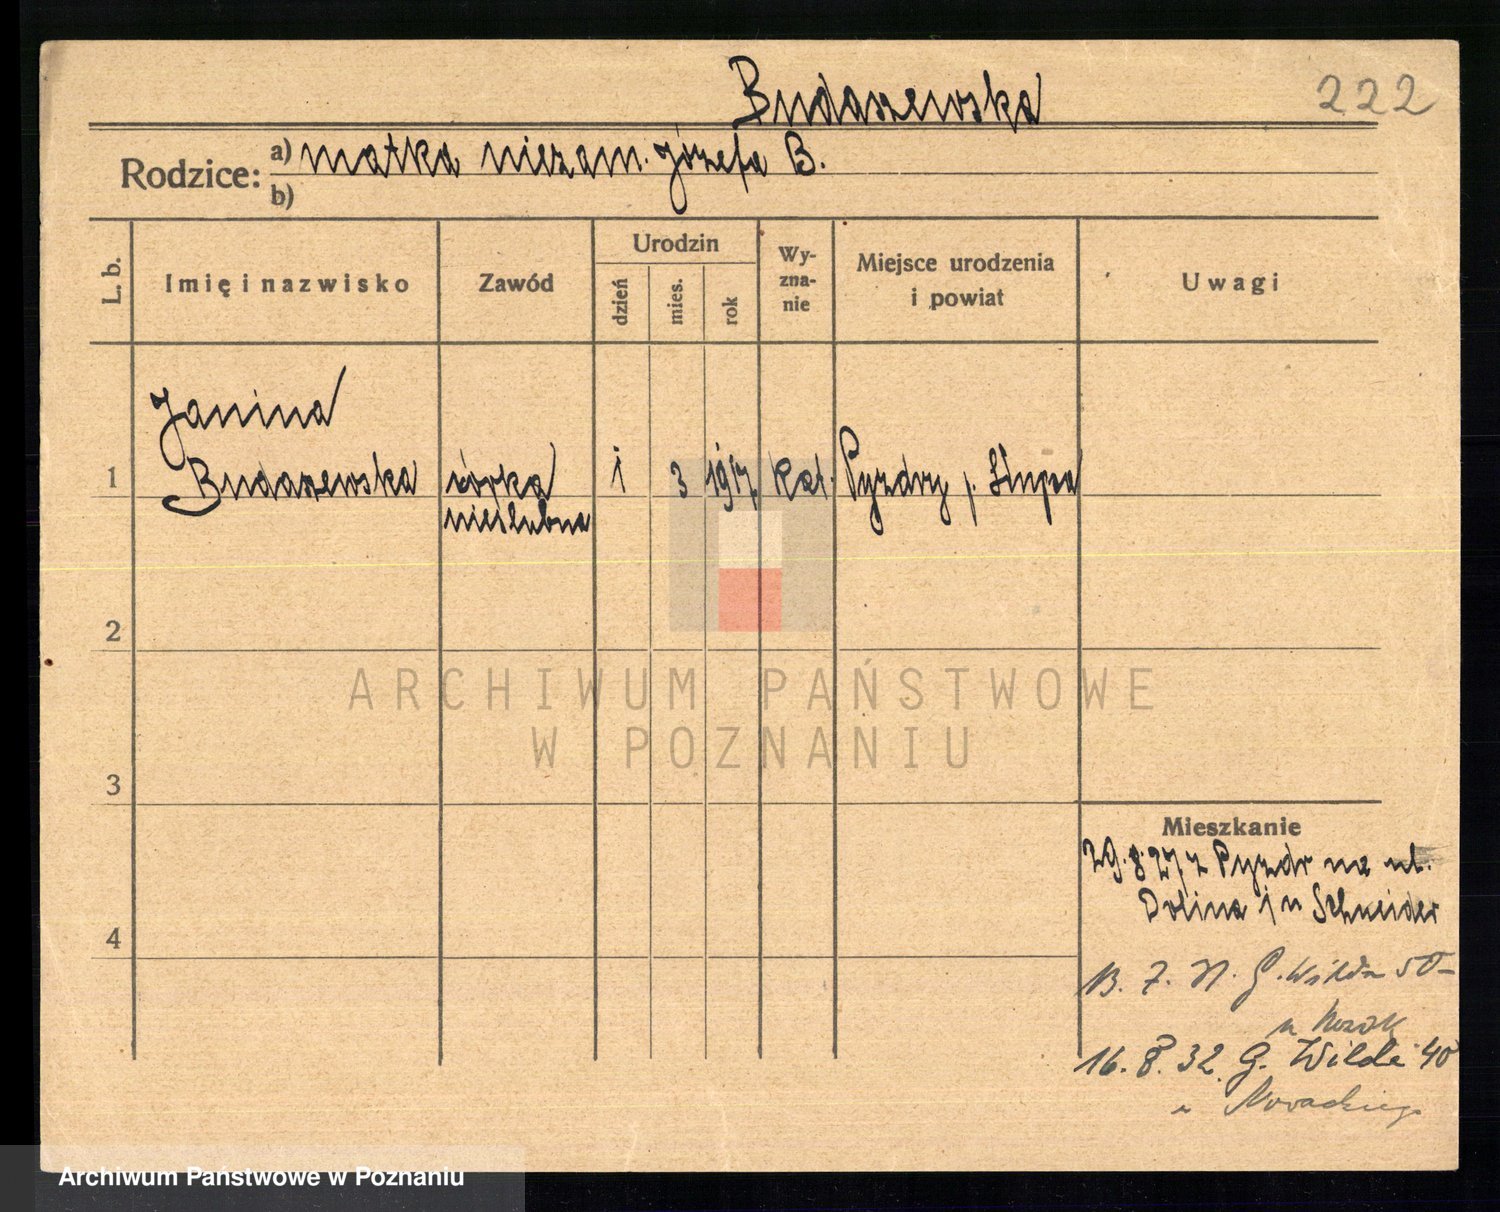 Budaszewska
222
Rodzice: a) matka niezam. Józefa B.
b)
L. b.
Imię i nazwisko
Zawód
Urodzin
dzień
mies.
rok
Wy-
zna-
nie
Miejsce urodzenia
i powiat
Uwagi
Janina
1 Budaszewska córka 1 3 1917 kat. Pyzdry p. Słupca
nieślubna
2
3
4
Mieszkanie
29.8.27 z Pyzdr na ul.
Dolina 1 u Schneider
G. Wilda 50
u Nowak
16.8.32 G. Wilda 40
u Nowackiego
ARCHIWUM PAŃSTWOWE
W POZNANIU
Archiwum Państwowe w Poznaniu